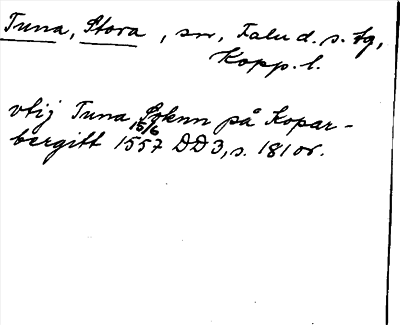 Tuna, Stora, sn, Falu d. s. lg,
Kopp. l.
vtij Tuna Soknn på Kopar-
15/6
bergitt 1557 DD3, s. 181 or.